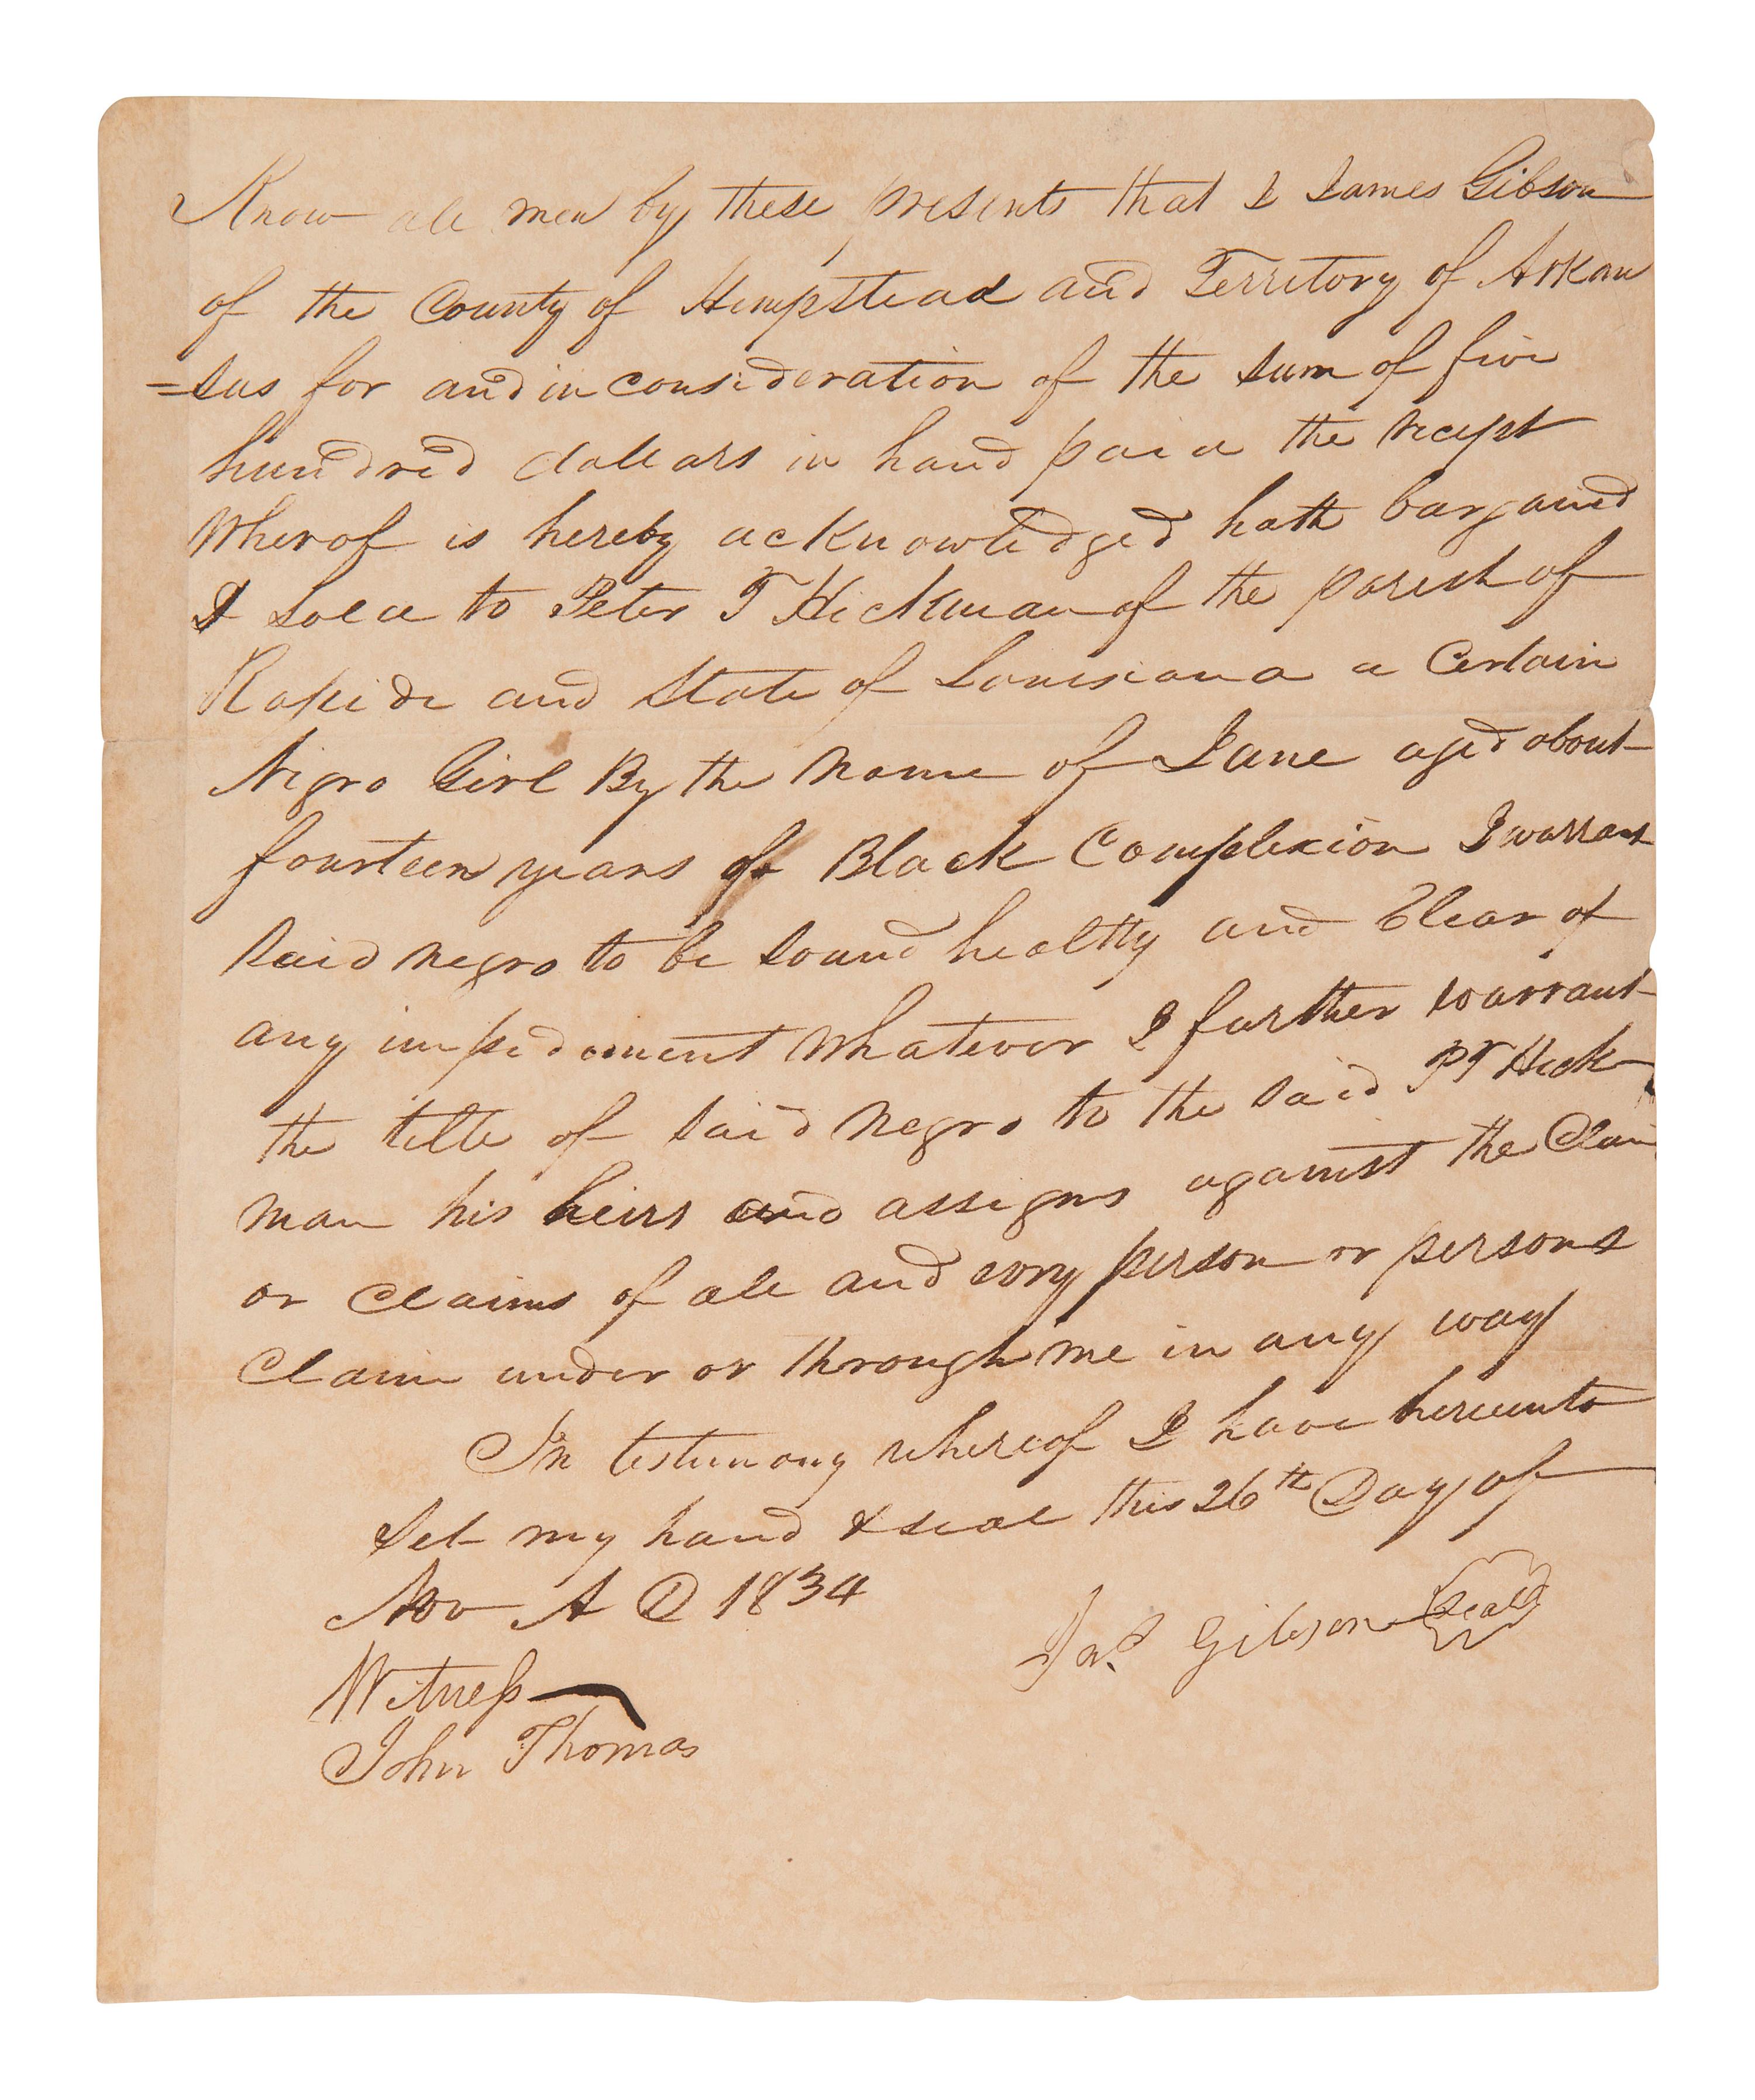 Know all men by these presents that I James Gibson
of the County of Hempstead and Territory of Arkan
=sas for and in consideration of the sum of five
hundred dollars in hand paid the recept
Wherof is hereby acknowledged hath bargained
& Sold to Peter T Hickman of the parish of
Rapide and State of Louisiana a Certain
Nigro Girl By the Name of Jane aged about
fourteen years of Black Complexion I warrant
said negro to be sound healthy and Clear of
any impediment Whatever I further warrant
the title of said Negro to the said P T Hick
man his heirs and assigns against the Claim
or Claims of all and evry person or persons
Claim under or through me in any way
In testimony whereof I have hereunto
Set my hand & seal this 26th Day of
Nov A D 1834
Jas Gibson Seal
Witness
John Thomas